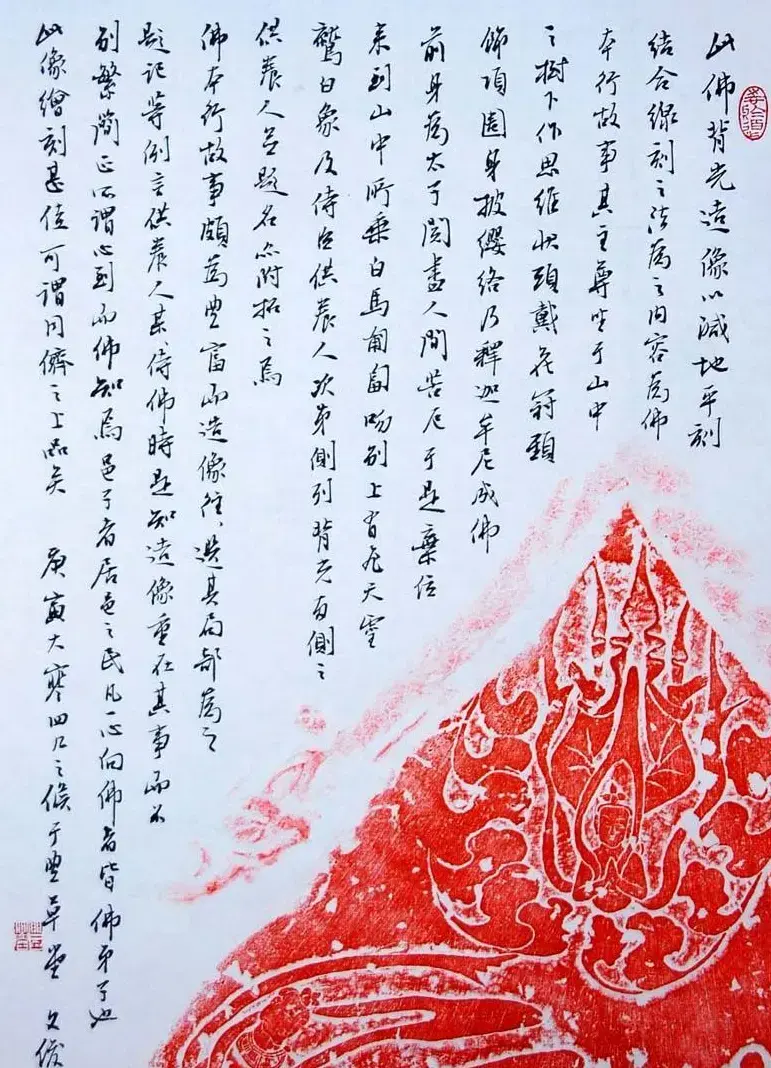 此佛背光造像以減地平刻
結合線刻之法為之內容為佛
本行故事其主尊坐于山中
之樹下作思維狀頭戴花冠頸
飾項圈身披纓絡乃釋迦牟尼成佛
前身為太子閱盡人間苦厄于是棄位
來到山中所乘白馬匍匐吻別上有飛天靈
鷲白象及侍臣供養人次第側列背光右側之
供養人並題名亦附拓之焉
佛本行故事頗為豐富而造像往、選其局部為之
題記等例言供養人某、侍佛時是知造像重在其事而不
別繁簡正所謂心到而佛知焉邑子者居邑之民凡一心向佛者皆佛弟子也
此像繪刻甚佳可謂同儕之上品矣 庚寅大寒四九之候于豐草堂 文俊